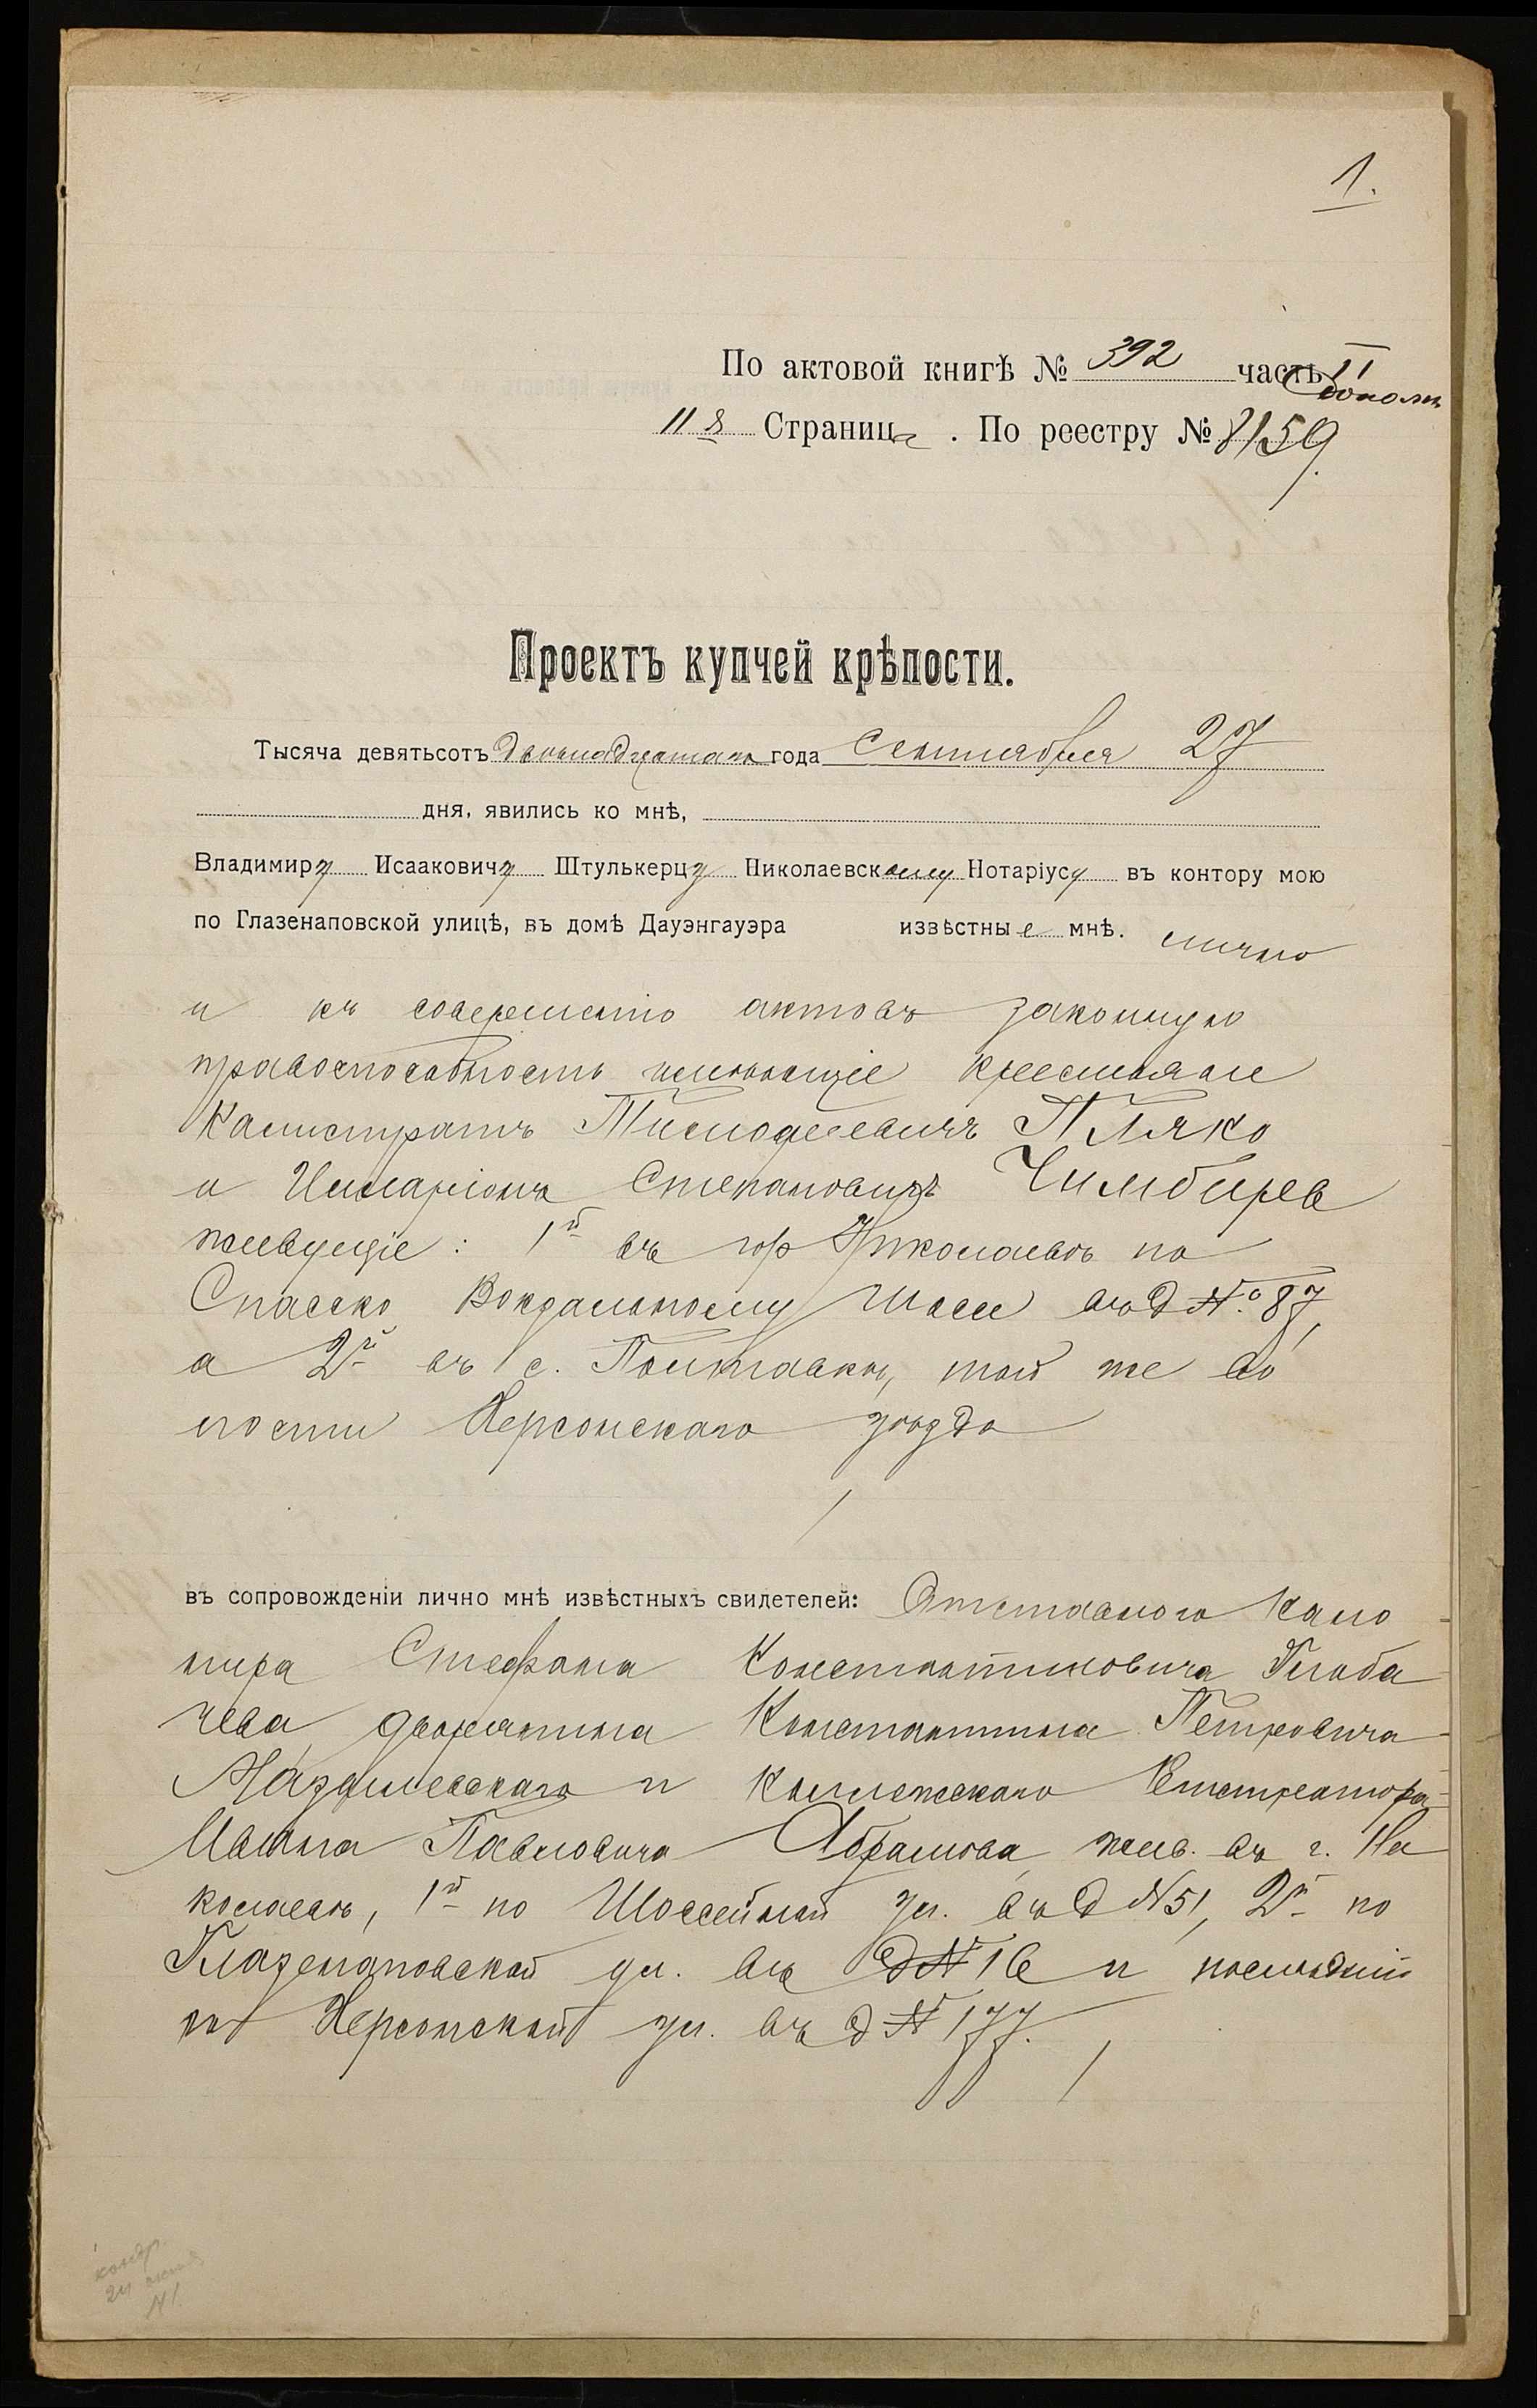 1.
По актовой книгѣ № 392 часть II
дополн
118 Страница. По реестру № 8159.
Проектъ купчей крѣпости.
Тысяча девятьсотъ двѣнадцатаго года Сентября 27
дня, явились ко мнѣ,
Владимиру Исааковичу Штулькерцу Николаевскому Нотаріусу въ контору мою
по Глазенаповской улицѣ, въ домѣ Дауэнгауэра известные мнѣ. лично
и къ совершенію актовъ законную
правоспособность имѣющіе крестьяне
Калистратъ Тимофеевичъ Пляко
и Иларіонъ Степановичъ Чимбирев
живущіе: 1й въ гор Николаевѣ по
Спасско Вокзальному Шоссе въ д №. 87,
а 2й въ с. Полтавкѣ, той же во
лости Херсонскаго уѣзда
въ сопровожденіи лично мнѣ извѣстныхъ свидетелей: Отставного Кано
нира Стефана Константиновича
чева, дворянина Константина Петровича
и Коллежскаго Регистратора
Ивана Павловича Абрамова, жив. въ г. Ни
колаевѣ, 1й по Шоссейной ул. въ д №51, 2й по
Глазенаповской ул. въ д № 16 и послѣдній
по Херсонской ул. въ д № 177.